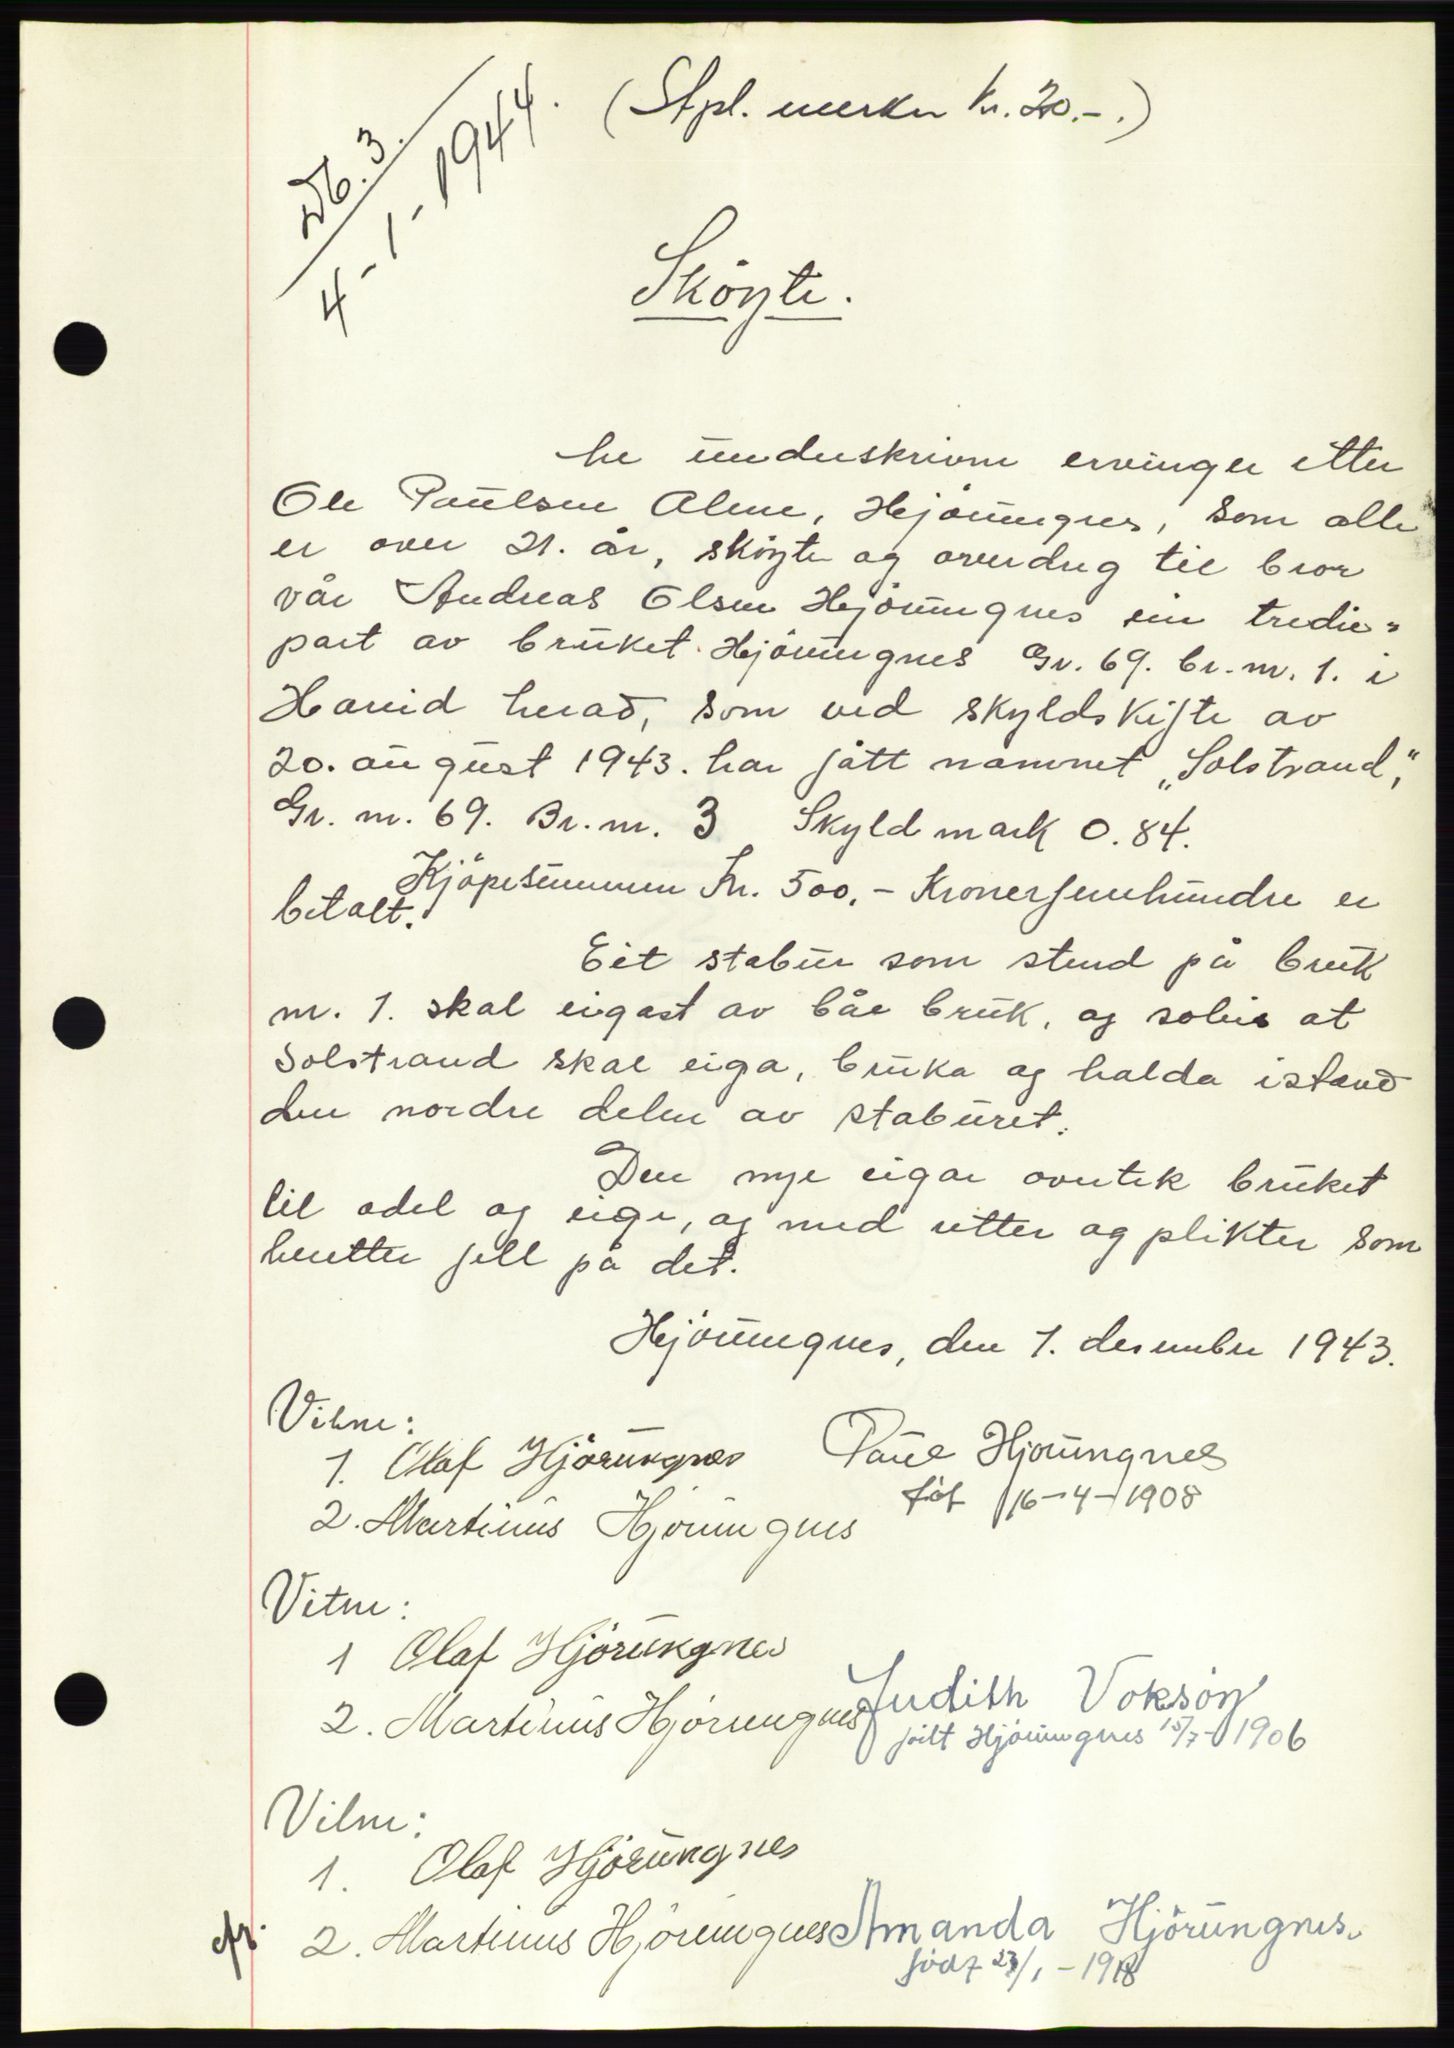 (Stpl. merker kr. 20.-.)
Db. 3.
4-1-1944.
Sköyte.
underskrivne ervinger etter
Ole Paulsen Alme, Hjörungnes, som alle
er over 21. år, sköyte og overdreg til bror
vår Andreas Olsen Hjörungnes ein tredie-
part av bruket Hjörungnes Gr. 69. br.nr. 1. i
Hareid herad, som ved skyldskifte av
20. august 1943. har fått namnet „Solstrand,"
Gr. nr. 69. Br. nr. 3 Skyld mark 0.84.
Kjöpesummen Kr. 500,- Kronerfemhundre er
betalt.
Eit stabur som stend på bruk
nr. 1. skal eigast av båe bruk, og soleis at
Solstrand skal eiga, bruka og halda istand
den nordre delen av staburet.
Den nye eigar overtek bruket
til odel og eige, og med retter og plikter som
heretter fell på det.
Hjörungnes, den 1. desember 1943.
Vitne:
1. Olaf Hjörungnes Paul Hjörungnes
föt 16-4-1908
2. Martinus Hjörungnes
Vitne:
1 Olaf Hjörungnes
2. Martinus Hjörungnes Judith Voksöy
fött Hjörungnes 15/7-1906
Vitne:
1. Olaf Hjörungnes
2. Martinus Hjörungnes Amanda Hjörungnes.
född 23/1-1918